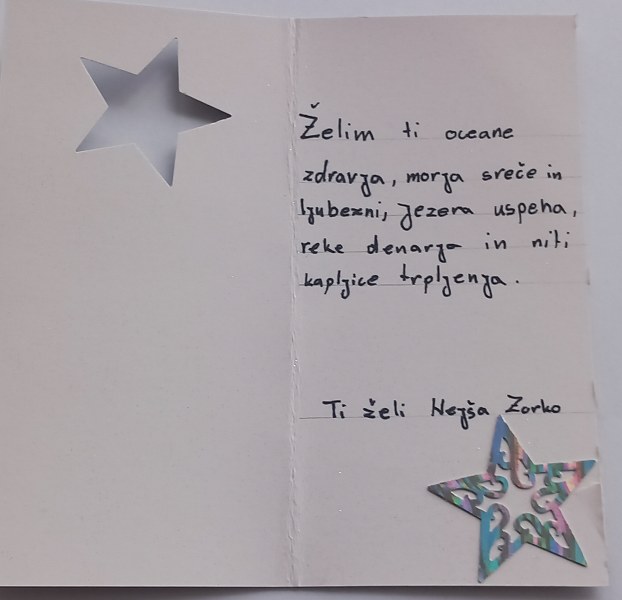 Želim ti oceane
zdravja, morja sreče in
ljubezni, jezera uspeha,
reke denarja in niti
kapljice trpljenja.
Ti želi Nejša Zorko